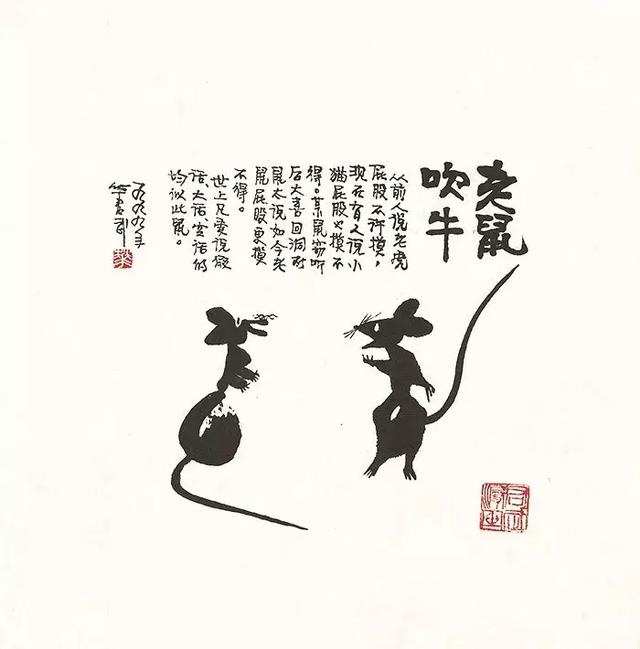 老鼠
吹牛
从前人说老虎
屁股不许摸，
现在有人说小
猫屁股也摸不
得。某鼠窃听
后大喜回洞对
鼠太说如今老
鼠屁股更摸
不得。
世上凡爱说假
话、大话、空话的
均似此鼠。
一九九九年
华君武